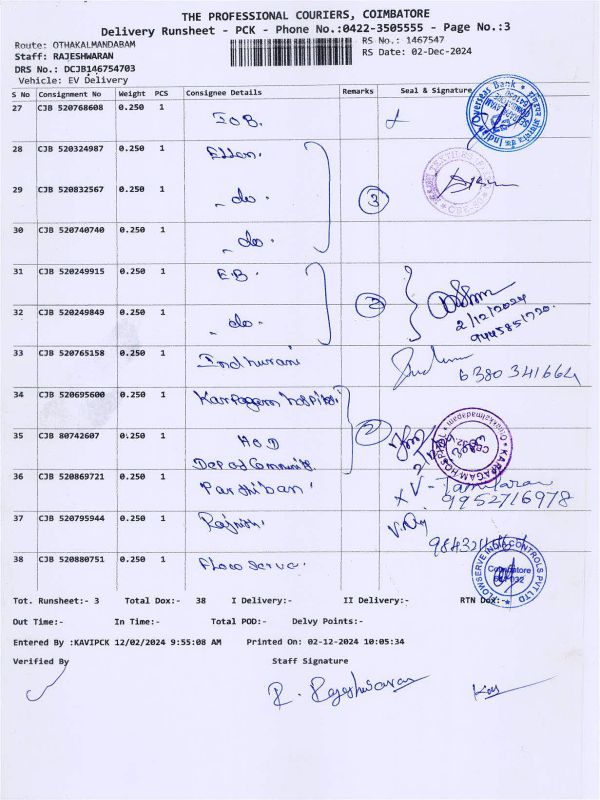 THE PROFESSIONAL COURIERS, COIMBATORE
Delivery Runsheet - PCK - Phone No.:0422-3505555 - Page No.:3
Route: OTHAKALMANDABAM
RS No.: 1467547
Staff: RAJESHWARAN
RS Date: 02-Dec-2024
DRS No.: DCJB146754703
Vehicle: EV Delivery
S No Consignment No Weight PCS Consignee Details Remarks Seal & Signature
27 CJB 520768608 0.250 1 IOB.
Indian Overseas Bank
28 CJB 520324987 0.250 1
29 CJB 520832567 0.250 1 - do -
3
30 CJB 520740740 0.250 1 - do -
31 CJB 520249915 0.250 1 E.B.
2
2/12/2024
32 CJB 520249849 0.250 1 - do -
33 CJB 520765158 0.250 1 Indhurani
6380 341664
34 CJB 520695600 0.250 1 Karpagam hospital
2
KARPAGAM HOSPITAL
35 CJB 80742607 0.250 1 HOD
Dep of Community
36 CJB 520869721 0.250 1 Parthiban
9952716978
37 CJB 520795944 0.250 1
38 CJB 520880751 0.250 1
FLOWSERVE INDIA CONTROLS PVT LTD
Coimbatore
Tot. Runsheet:- 3 Total Dox:- 38 I Delivery:- II Delivery:- RTN Dox:-
Out Time:- In Time:- Total POD:- Delvy Points:-
Entered By :KAVIPCK 12/02/2024 9:55:08 AM Printed On: 02-12-2024 10:05:34
Verified By Staff Signature
R. Rajeshwaran